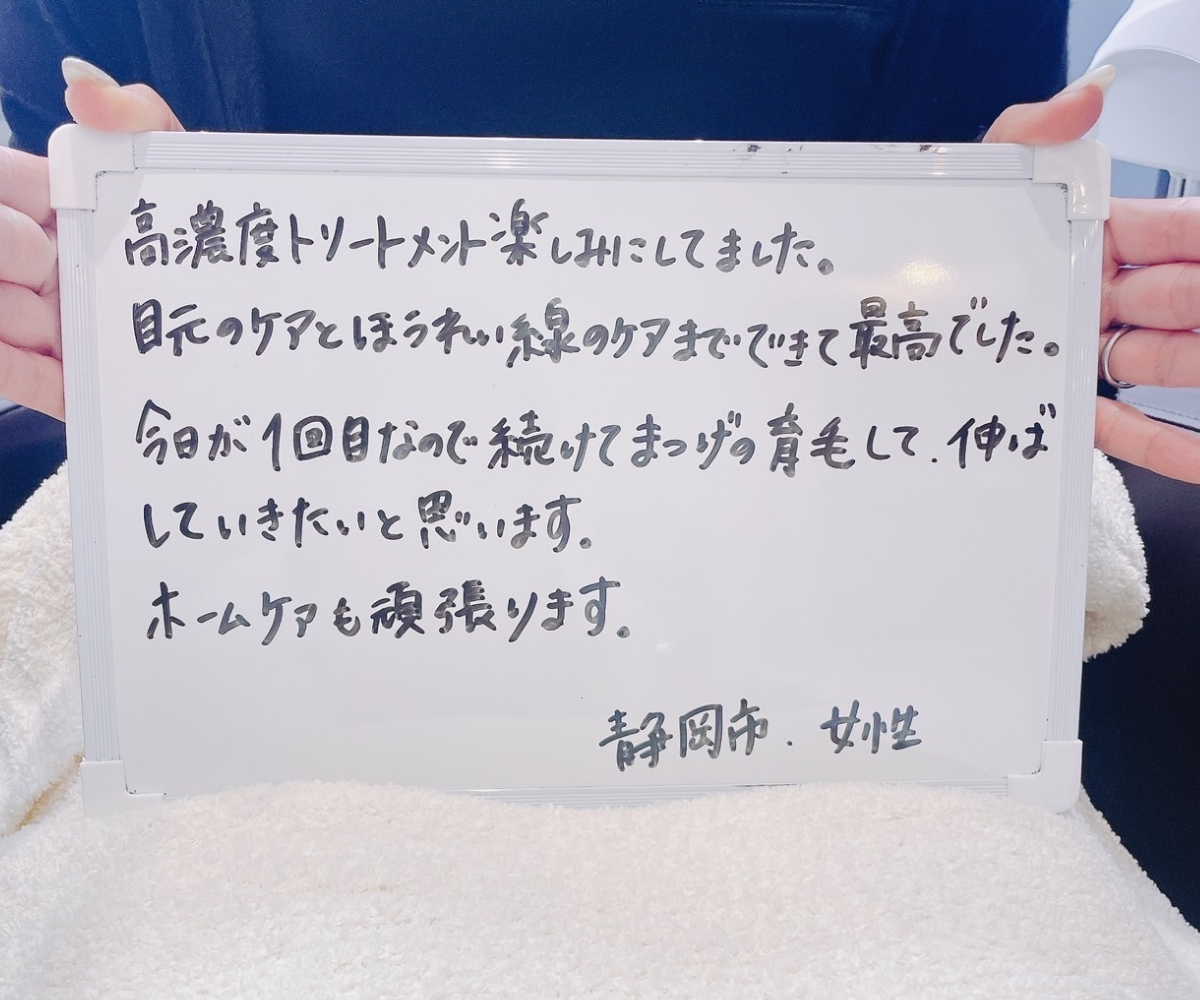 高濃度トリートメント楽しみにしてました。
目元のケアとほうれい線のケアまでできて最高でした。
今日が1回目なので続けてまつげの育毛して、伸ば
していきたいと思います。
ホームケアも頑張ります。
静岡市、女性